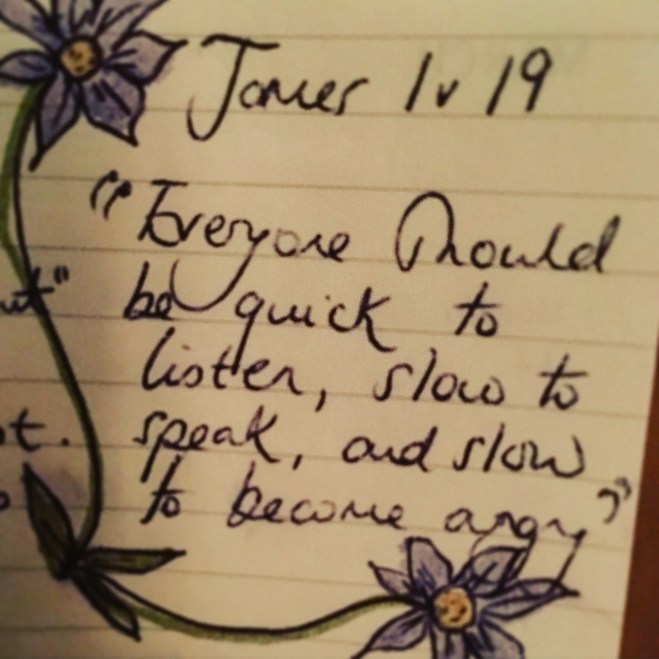 James 1 v 19
"Everyone should
be quick to
listen, slow to
speak, and slow
to become angry"